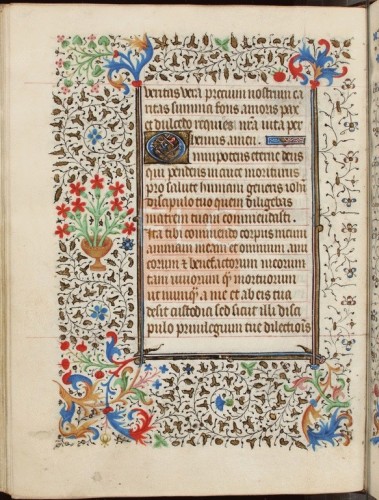 veritas vera precium nostrum et
ritas summa fons amoris pax
et dulcedo requies nr̄a vita per
hennis amen.
Omnipotens eterne deus
qui pendens in cruce moriturus
pro salute humani generis ioh̄i
discipulo tuo quem diligebas
matrem tuam commendasti.
ita tibi commendo corpus meum
animam meam et omnium ami
corum et benefactorum meorum
tam vivorum q̄ mortuorum
ut a me et ab eis tua
desit custodia sed sicut illi disci
pulo privilegium tue dilectionis